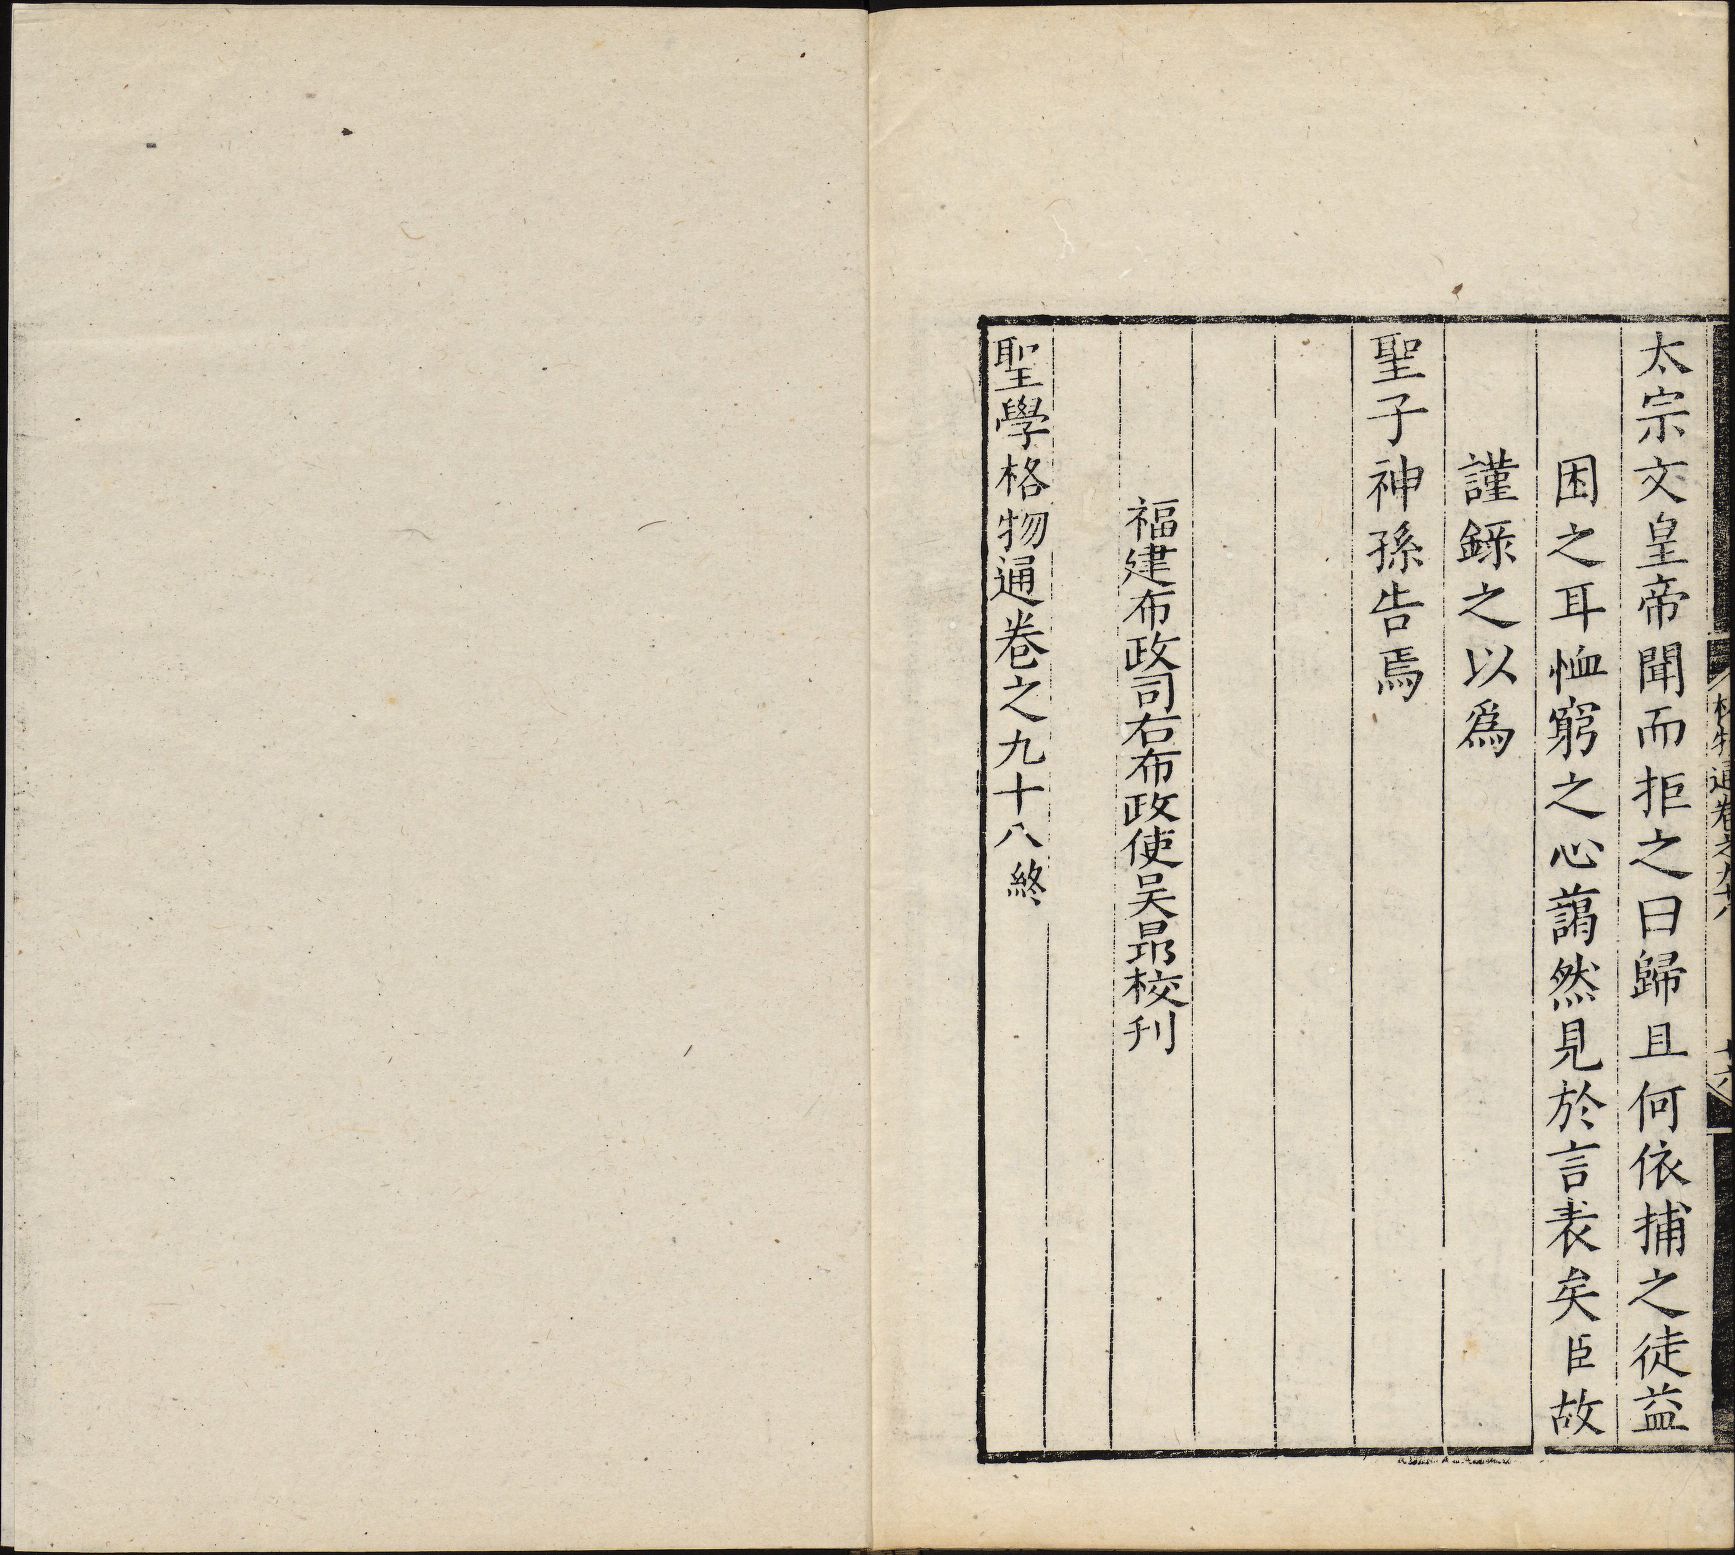 太宗文皇帝聞而拒之曰歸且何依捕之徒益
困之耳恤窮之心藹然見於言表矣臣故
謹錄之以爲
聖子神孫告焉
福建布政司右布政使吴昻校刋
聖學格物通卷之九十八終
格物通卷之九十八
十六